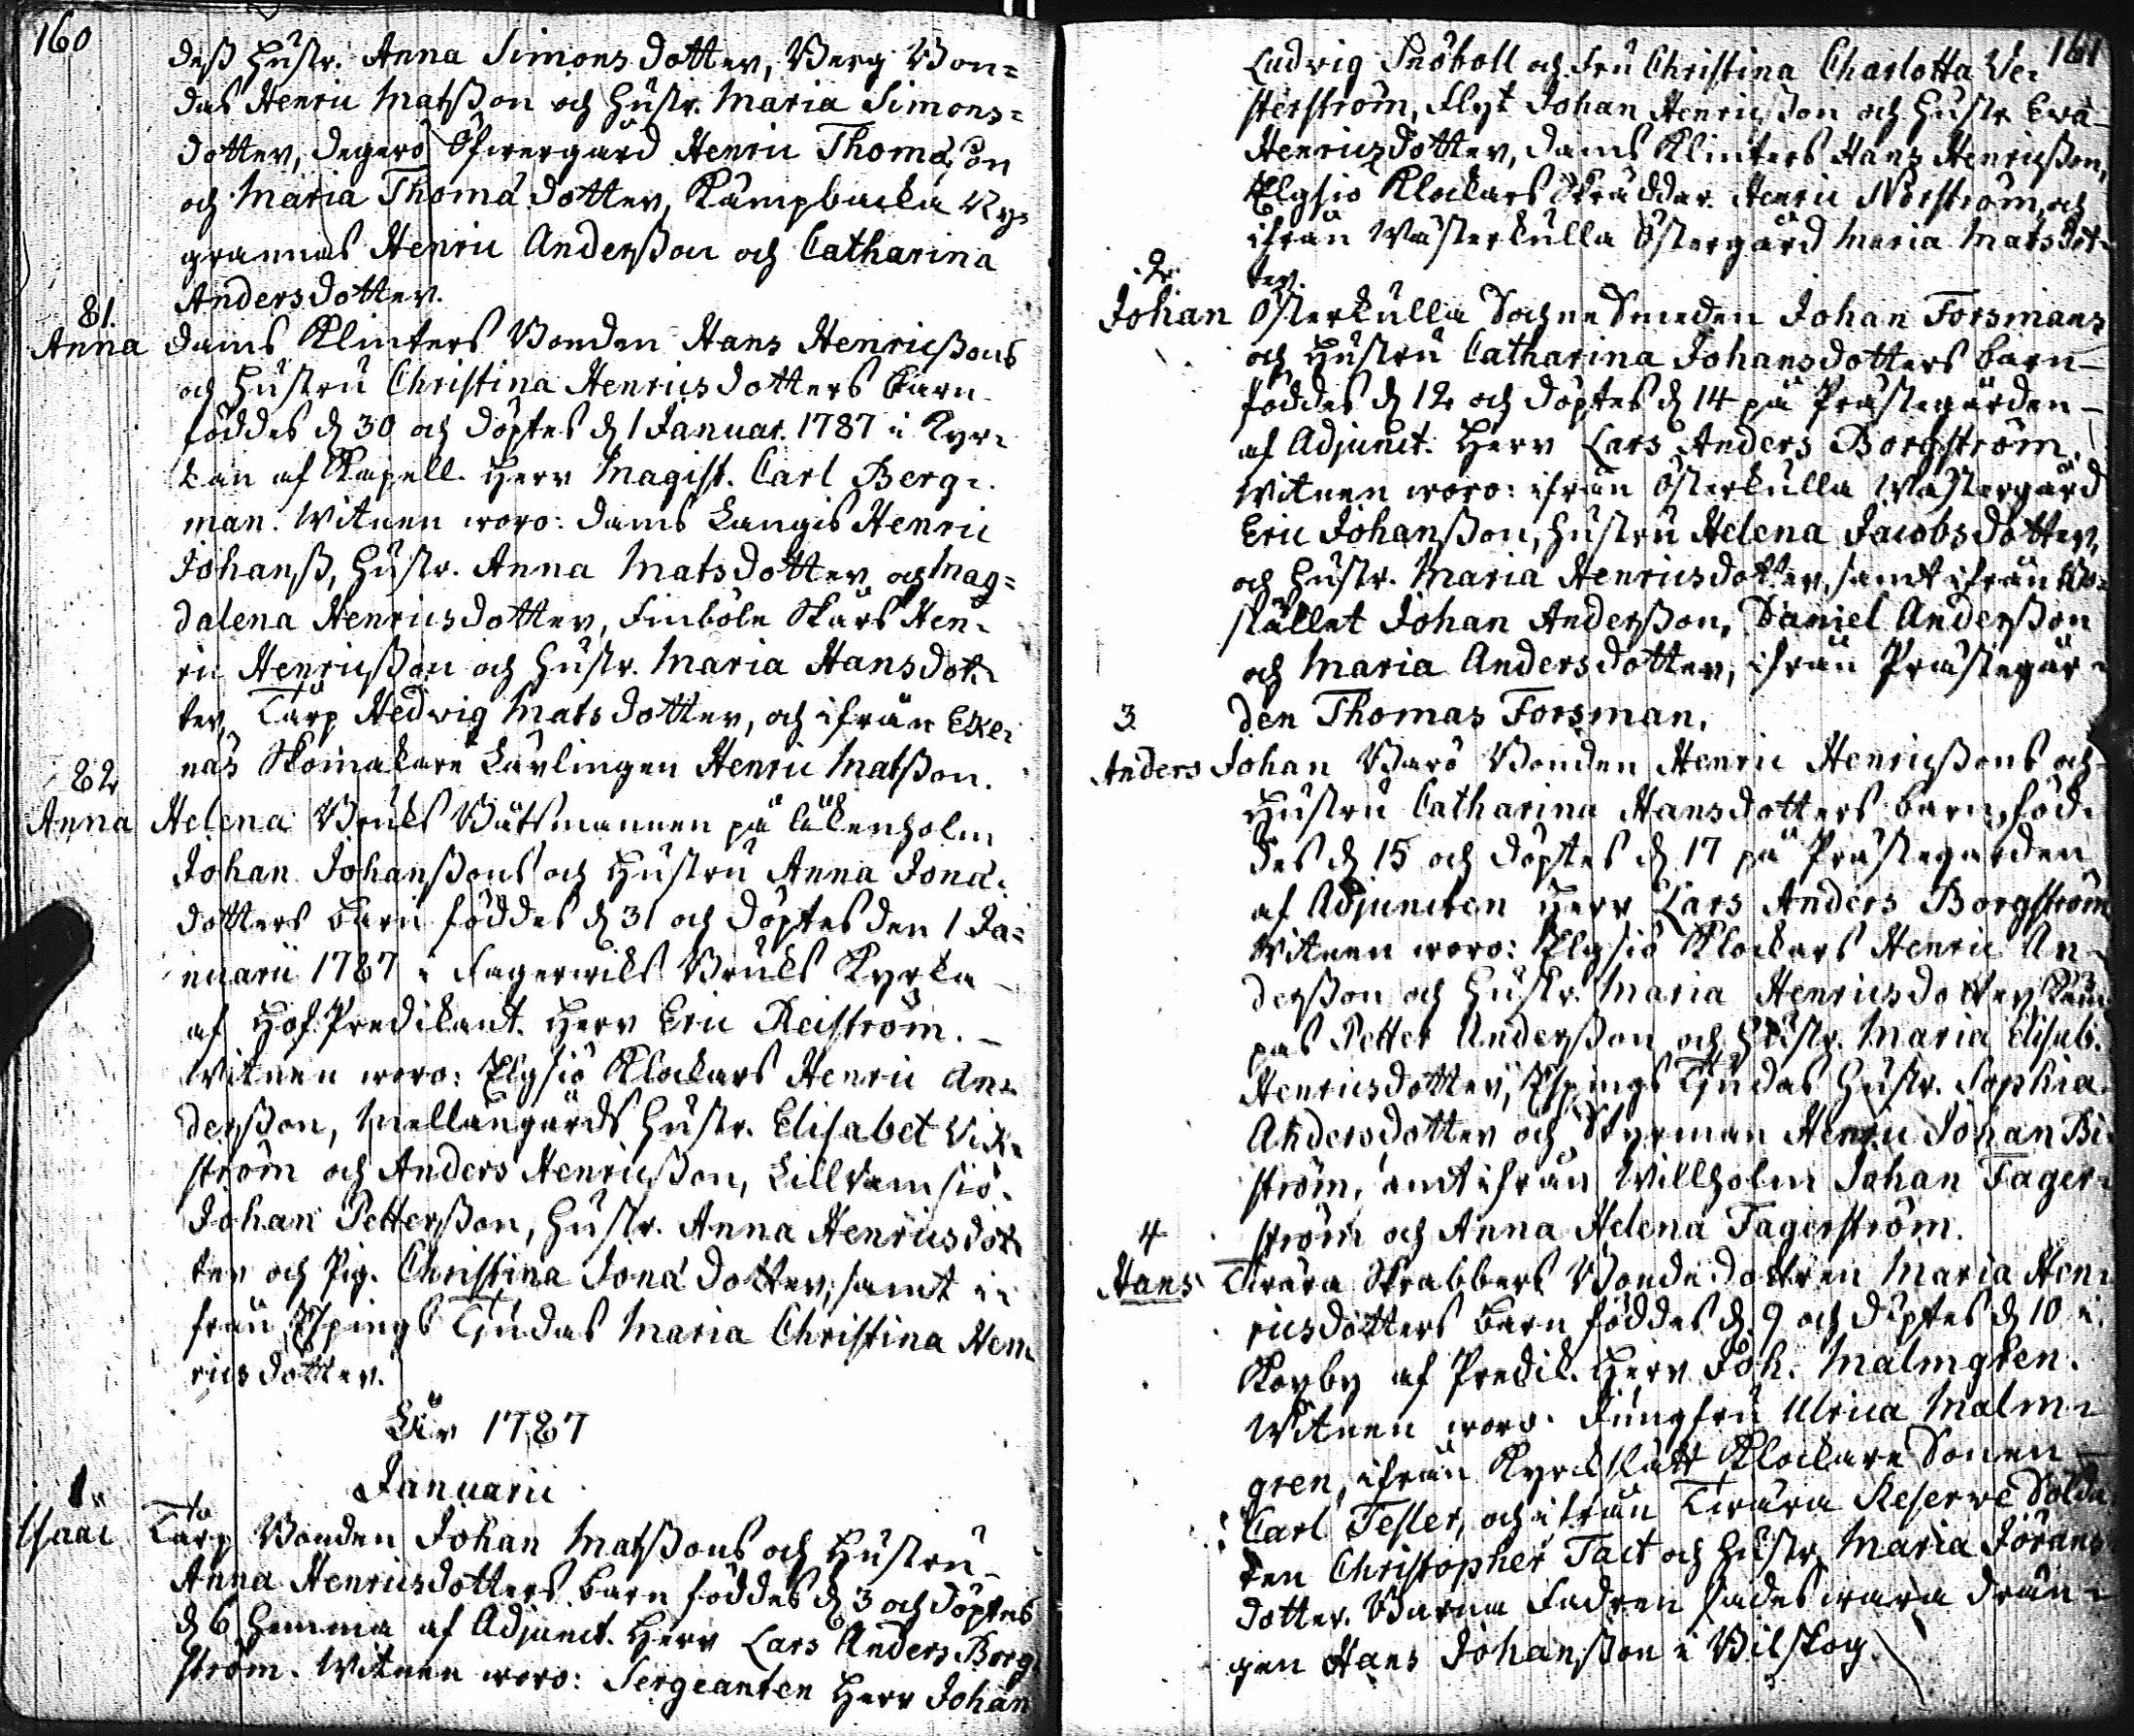 160
dess Hustr. Anna Simons dotter, Berg Bon=
das Henric Matsson och Hustr. Maria Simons=
dotter, Degerö Öfwergård Henric Thomæson
och Maria Thomæ dotter, Kämpbacka Ny=
grannas Henric Andersson och Catharina
Andersdotter.
81.
Anna Dams Klinkers Bonden Hans Henricssons
och Hustru Christina Henricsdotters barn
föddes d 30 och döptes d 1 Januar. 1787 i Kyr=
kan af Kapell. Herr Magist. Carl Berg=
man. Witnen woro: Dams Langis Henric
Johanss, Hustr. Anna Matsdotter och Mag=
dalena Henricsdotter, Finböle Skårs Hen=
ric Henricsson och Hustr. Maria Hansdot=
ter, Tårp Hedvig Mats dotter, och ifrån Eke=
näs Skomakare Lärlingen Henric Matsson.
82
Anna Helena Bruks Båtsmannen på
Johan Johanssons och Hustru Anna Jonæ
dotters barn föddes d 31 och döptes den 1 Ja=
nuarii 1787 i Fagerwiks Bruks Kyrka
af Hof. Predikant. Herr Eric Reiström.
Witnen woro: Elgsiö Klockars Henric An=
dersson, Mellangårds Hustr. Elisabet Wik=
ström och Anders Henricsson, Lillramsiö
Johan Pettersson, Hustr. Anna Henricsdot
ter och Pig. Christina Jonæ dotter, samt i=
från Espings Gudas Maria Christina Hen
ricsdotter.
År 1787
Januarii
1.
Isaac Tårp Bonden Johan Matssons och Hustru
Anna Henricsdotters barn föddes d 3 och döptes
d 6 hemma af Adjunct. Herr Lars Anders Borg
ström. Witnen woro: Sergeanten Herr Johan
161
Ludvig Snöboll och Fru Christina Charlotta We=
sterström, Flyt Johan Henricsson och Hustr Eva
Henricsdotter, Dams Klinkers Hans Henricsson,
Elgsiö Klockars Skräddar. Henric Norström, och
ifrån Wästerkulla Östergård Maria Matsdot=
ter.
2.
Johan Österkulla Sochne Smeden Johan Forsmans
och Hustru Catharina Johansdotters barn
föddes d 12 och döptes d 14 på Prästegården
af Adjunct. Herr Lars Anders Borgström.
Witnen woro: ifrån Österkulla Wästergård
Eric Johansson, Hustru Helena Jacobsdotter,
och Hustr. Maria Henricsdotter, samt ifrån Bo=
stället Johan Andersson, Daniel Andersson
och Maria Andersdotter, ifrån Prästegår=
den Thomas Forsman.
3
Anders Johan Barö Bonden Henric Henricssons och
Hustru Catharina Hansdotters barn föd=
des d 15 och döptes d 17 på Prästegården
af Adjuncten Herr Lars Anders Borgström
Witnen woro: Elgsiö Klockars Henric An=
dersson och Hustr. Maria Henricsdotter,
Petter Andersson och Hustr. Maria Elisab.
Henricsdotter, Espings Gudas Hustr. Sophia
Andersdotter och Styrman Henric Johan Bi
ström, samt ifrån Willholm Johan Fager=
ström och Anna Helena Fagerström.
4
Hans Twära Skrabbers Bonde dottren Maria Hen=
ricsdotters barn föddes d 9 och döptes d 10 i
Koxby af Predik. Herr Joh. Malmgren.
Witnen woro: Jungfru Ulrica Malm=
gren, ifrån Kyrckslätt Klockare Sonen
Carl Tesler, och ifrån Twära Reserve Solda
ten Christopher Tact och Hustr. Maria Jörans
dotter. Barna Fadren sades wara Drän=
gen Hans Johansson i Bilskog.